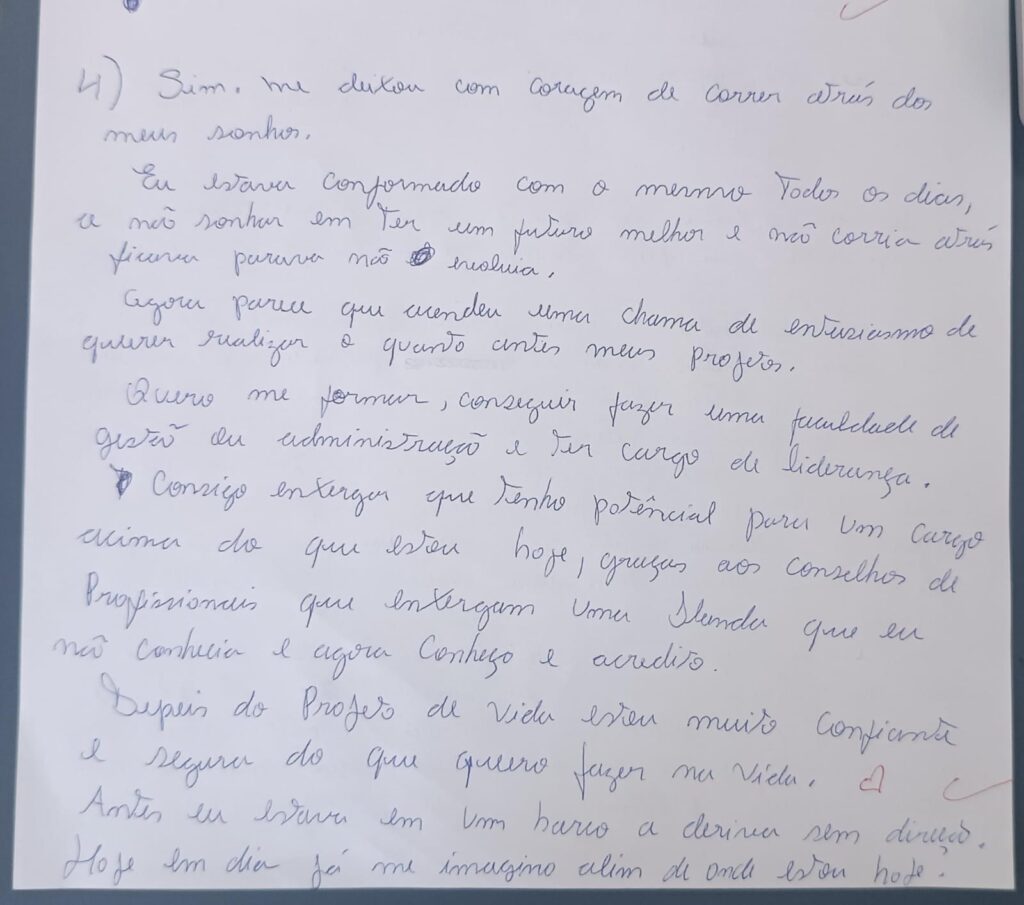 4) Sim. me deixou com coragem de correr atrás dos
meus sonhos.
Eu estava conformado com o mesmo Todos os dias,
a não sonhar em Ter um futuro melhor e não corria atrás
ficava parava não evoluia.
Agora parece que acendeu uma chama de entusiasmo de
querer realizar o quanto antes meus projetos.
Quero me formar, conseguir fazer uma faculdade de
gestão ou administração e Ter cargo de liderança.
Consigo enxergar que Tenho potêncial para um cargo
acima do que estou hoje, graças aos conselhos de
Profissionais que enxergam uma que eu
não conhecia e agora Conheço e acredito.
Depois do Projeto de Vida estou muito Confiante
e segura do que quero fazer na Vida.
Antes eu estava em um barco a deriva sem direção.
Hoje em dia já me imagino além de onde estou hoje.